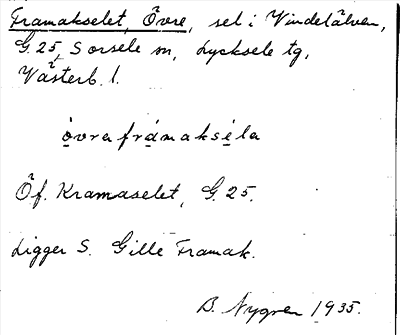 Framakselet, Övre, sel i Vindelälven,
G. 25, Sorsele sn, Lycksele tg,
Västerb. l.
òvra frámakséla
Öf. Kramaselet, G. 25.
Ligger S. Gille Framak.
B. Nygren 1935.